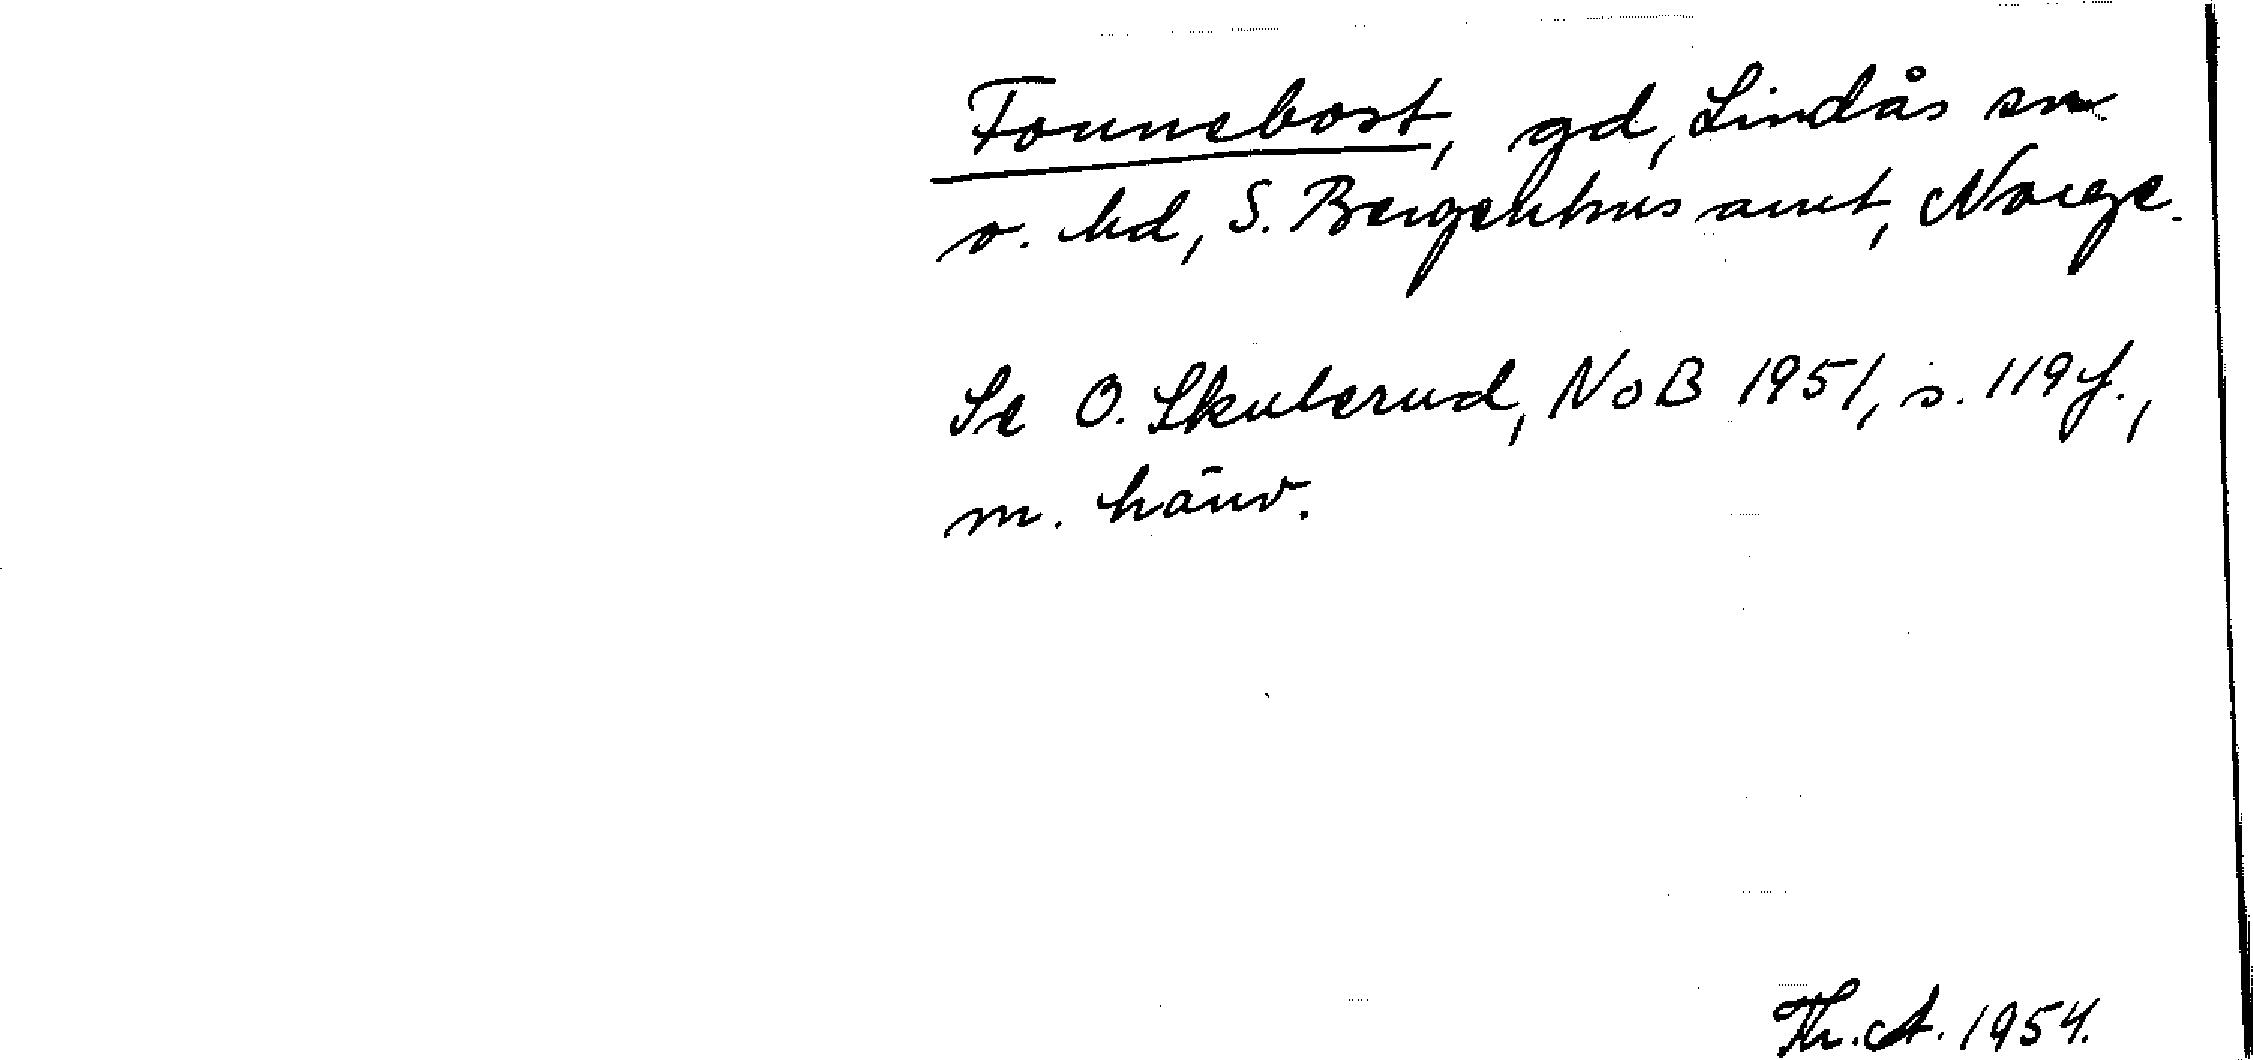 Fonnebost, gd, Lindås sn
o. hd, S. Bergenhus amt, Norge.
Se O. Skulerud, NoB 1951, s. 119 f.,
m. hänv.
Th. A. 1954.